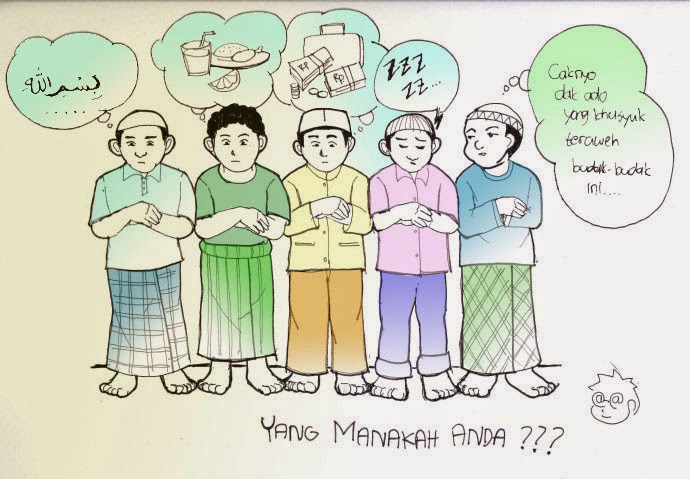 بِسْمِ اللّٰه
......
Rp
Rp
ZZZ
ZZ...
Caknyo
dak ado
yang khusyuk
teraweh
budak-budak
ini....
YANG MANAKAH ANDA ???